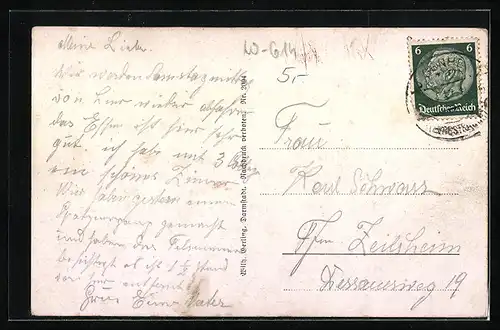 Meine Lieben.
Wir werden Samstag mittag
von hier wieder abfahren
das Essen ist hier sehr
gut. ich habe mit 3
ein schönes Zimmer
Wir haben gestern einen
Spaziergang gemacht
und haben das Felsenmeer
besichtigt es ist 1½ Stund
von hier entfernt
Gruß Euer Vater
W-614
5,-
Wilh. Gerling, Darmstadt. Nachdruck verboten. Nr. 2094
6 6
Deutsches Reich
Frau
Karl Schwarz
Ffm Zeilsheim
Dessauerweg 19